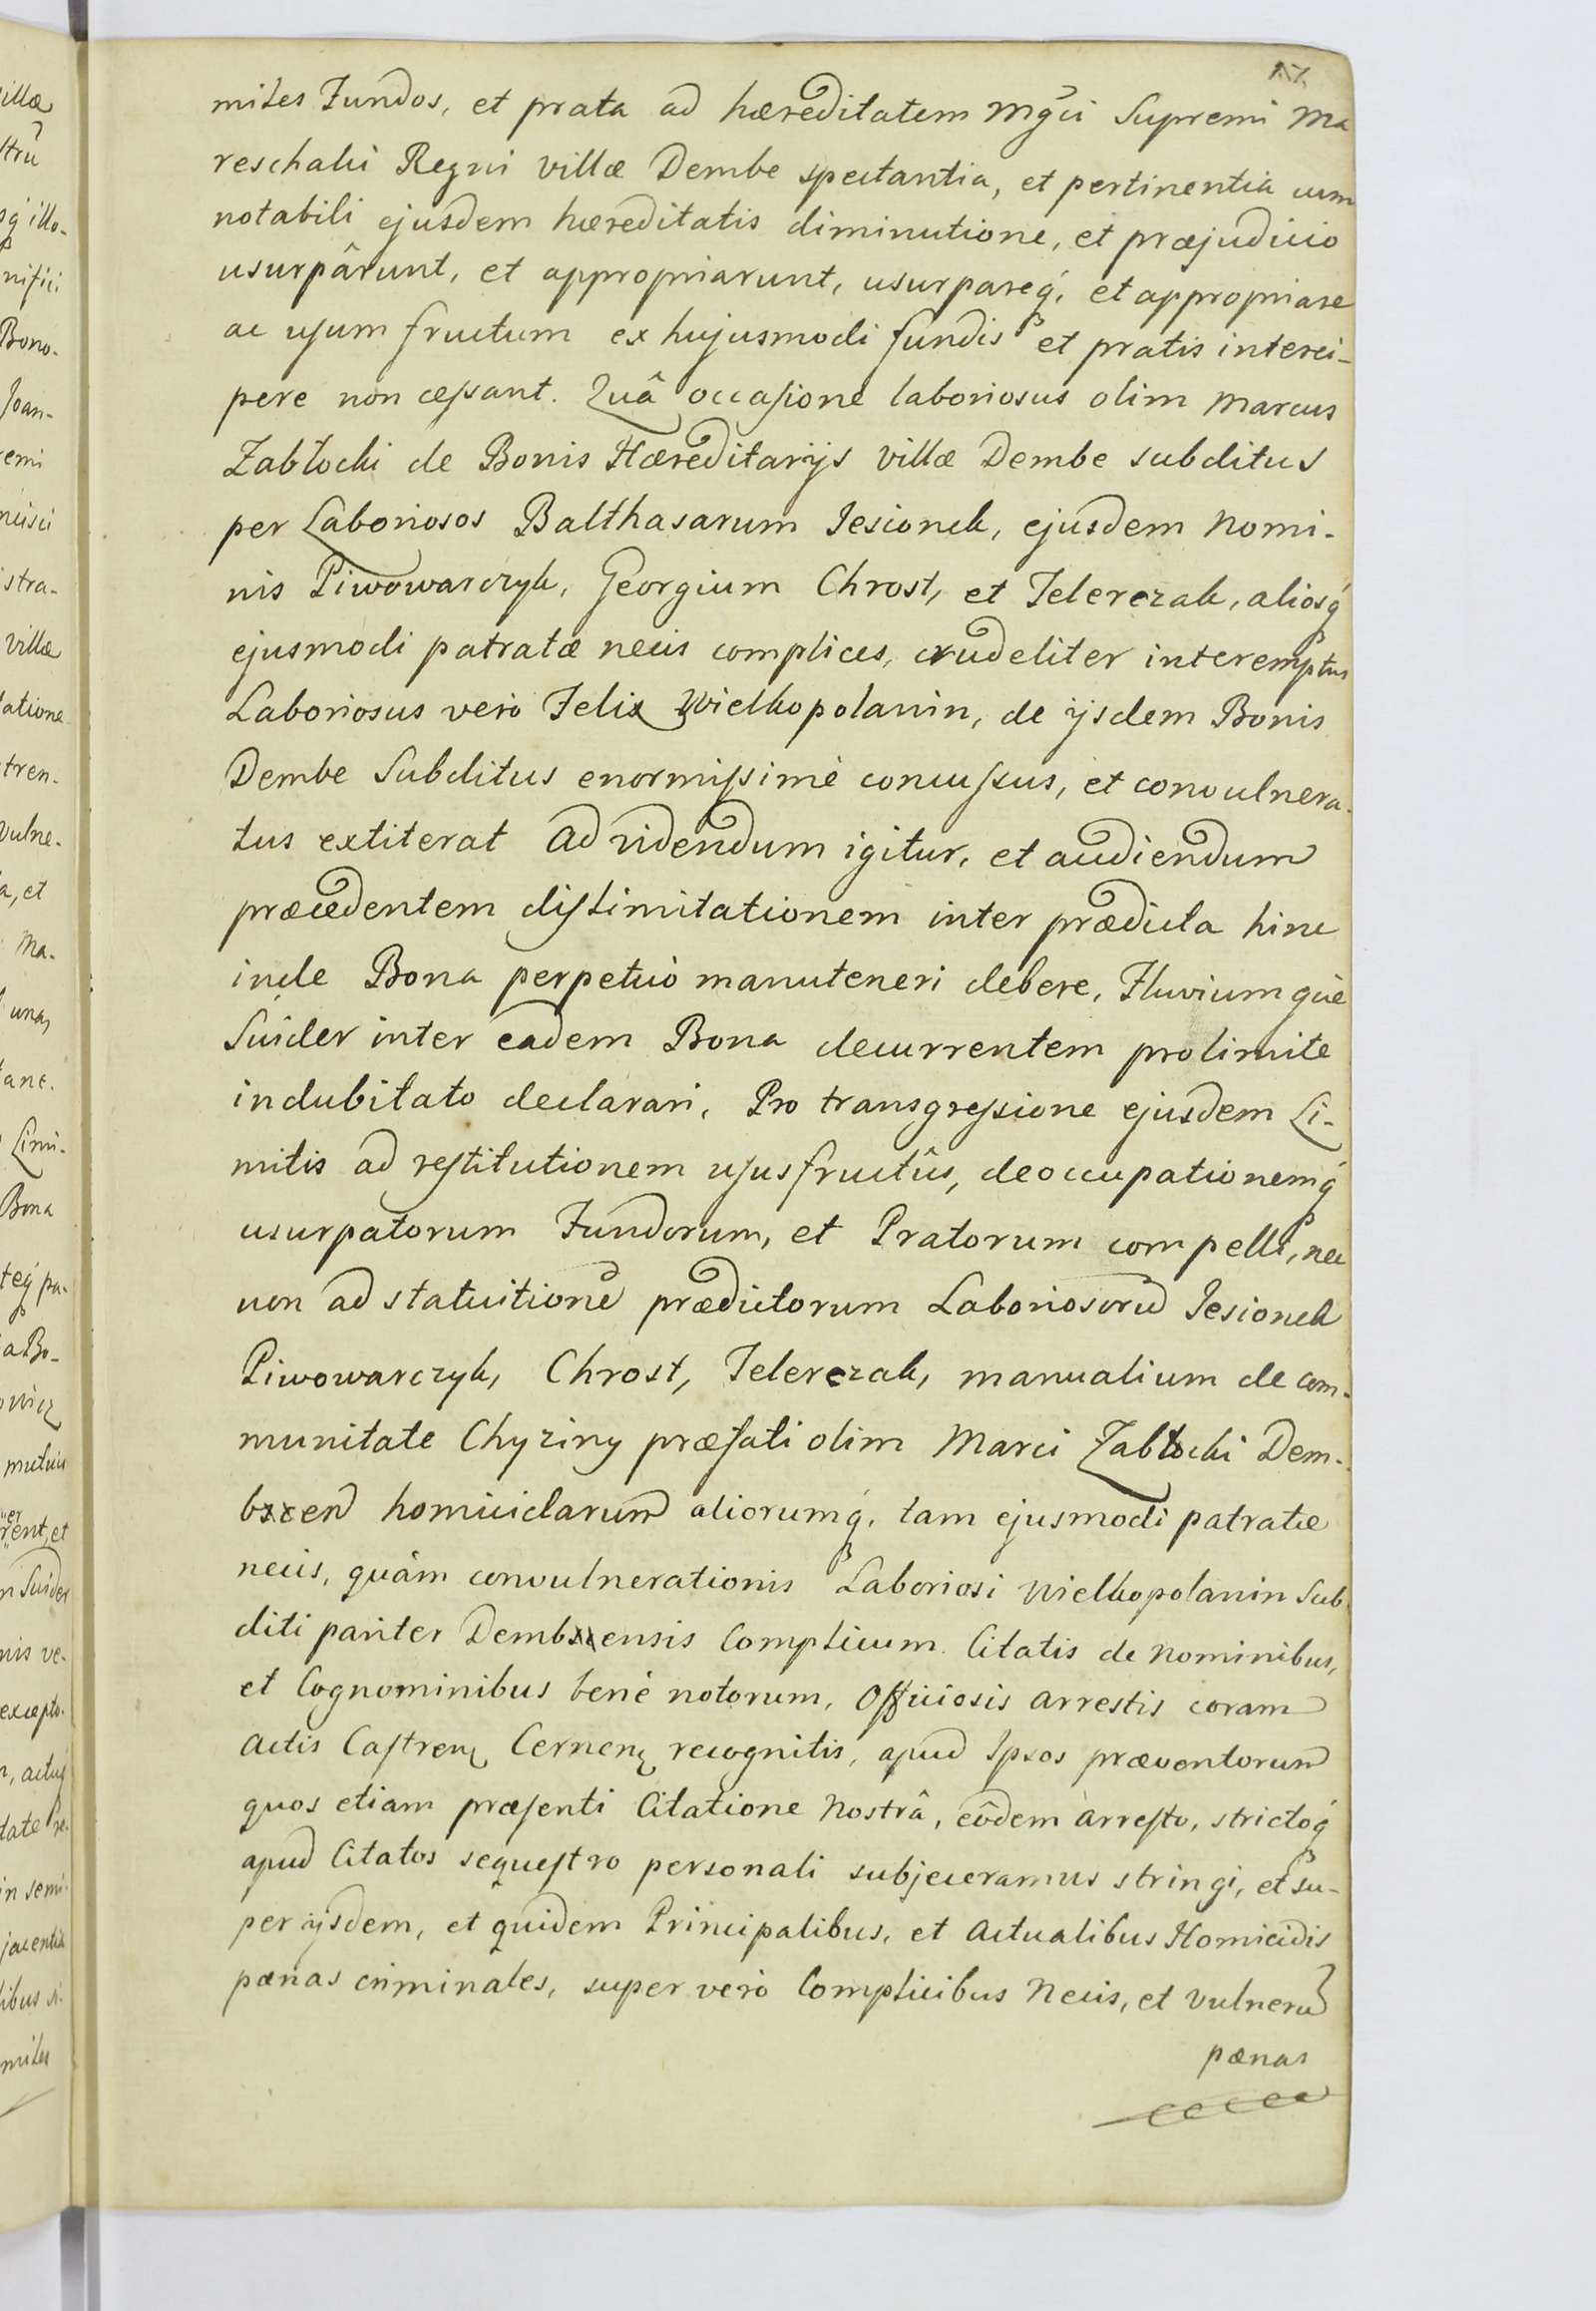 17.
mites Fundos, et prata ad hæreditatem Mgci Supremi Ma
reschalci Regni villæ Dembe spectantia, et pertinentia cum
notabili ejusdem hæreditatis diminutione, et præjudicio
usurpârunt, et appropriarunt, usurpareq, et appropriare
ac usum fructum ex hujusmodi fundis et pratis interci-
pere non cessant. Quâ occasione laboriosus olim Marcus
Zabłocki de Bonis Hæreditarijs villæ Dembe subditus
per Laboriosos Balthasarum Jesionek, ejusdem Nomi-
nis Piwowarczyk, Georgium Chrost, et Felerczak, aliosq
ejusmodi patratæ necis complices, crudeliter interemptus
Laboriosus verò Felix Wielkopolanin, de ijsdem Bonis
Dembe Subditus enormissimè concussus, et convulnera-
tus extiterat Ad videndum igitur, et audiendum
præcedentem dislimitationem inter prædicta hinc
inde Bona perpetuò manuteneri debere, Fluviumquè
Swider inter eadem Bona decurrentem pro limite
indubitato declarari, Pro transgressione ejusdem Li-
mitis ad restitutionem ususfructûs, deoccupationemq
usurpatorum Fundorum, et Pratorum compelli, nec
non ad statuitione prædictorum Laboriosorū Jesionek
Piwowarczyk, Chrost, Felerczak, manualium de com-
munitate Chyziny præfati olim Marci Zabłocki Dem-
bxcen homicidarum aliorumq, tam ejusmodi patratæ
necis, quàm convulnerationis Laboriosi Wielkopolanin Sub
diti pariter Dembxcensis Complicum. Citatis de Nominibus,
et Cognominibus benè notorum, Officiosis Arrestis coram
Actis Castren Cernen recognitis, apud Ipsos præventorum
quos etiam præsenti Citatione Nostrâ, eôdem Arresto, strictoq
apud Citatos sequestro personali subjeceramus stringi, et su-
per ijsdem, et quidem Principalibus, et Actualibus Homicidis
pœnas criminales, super verò Complicibus Necis, et vulnerū
pœnas